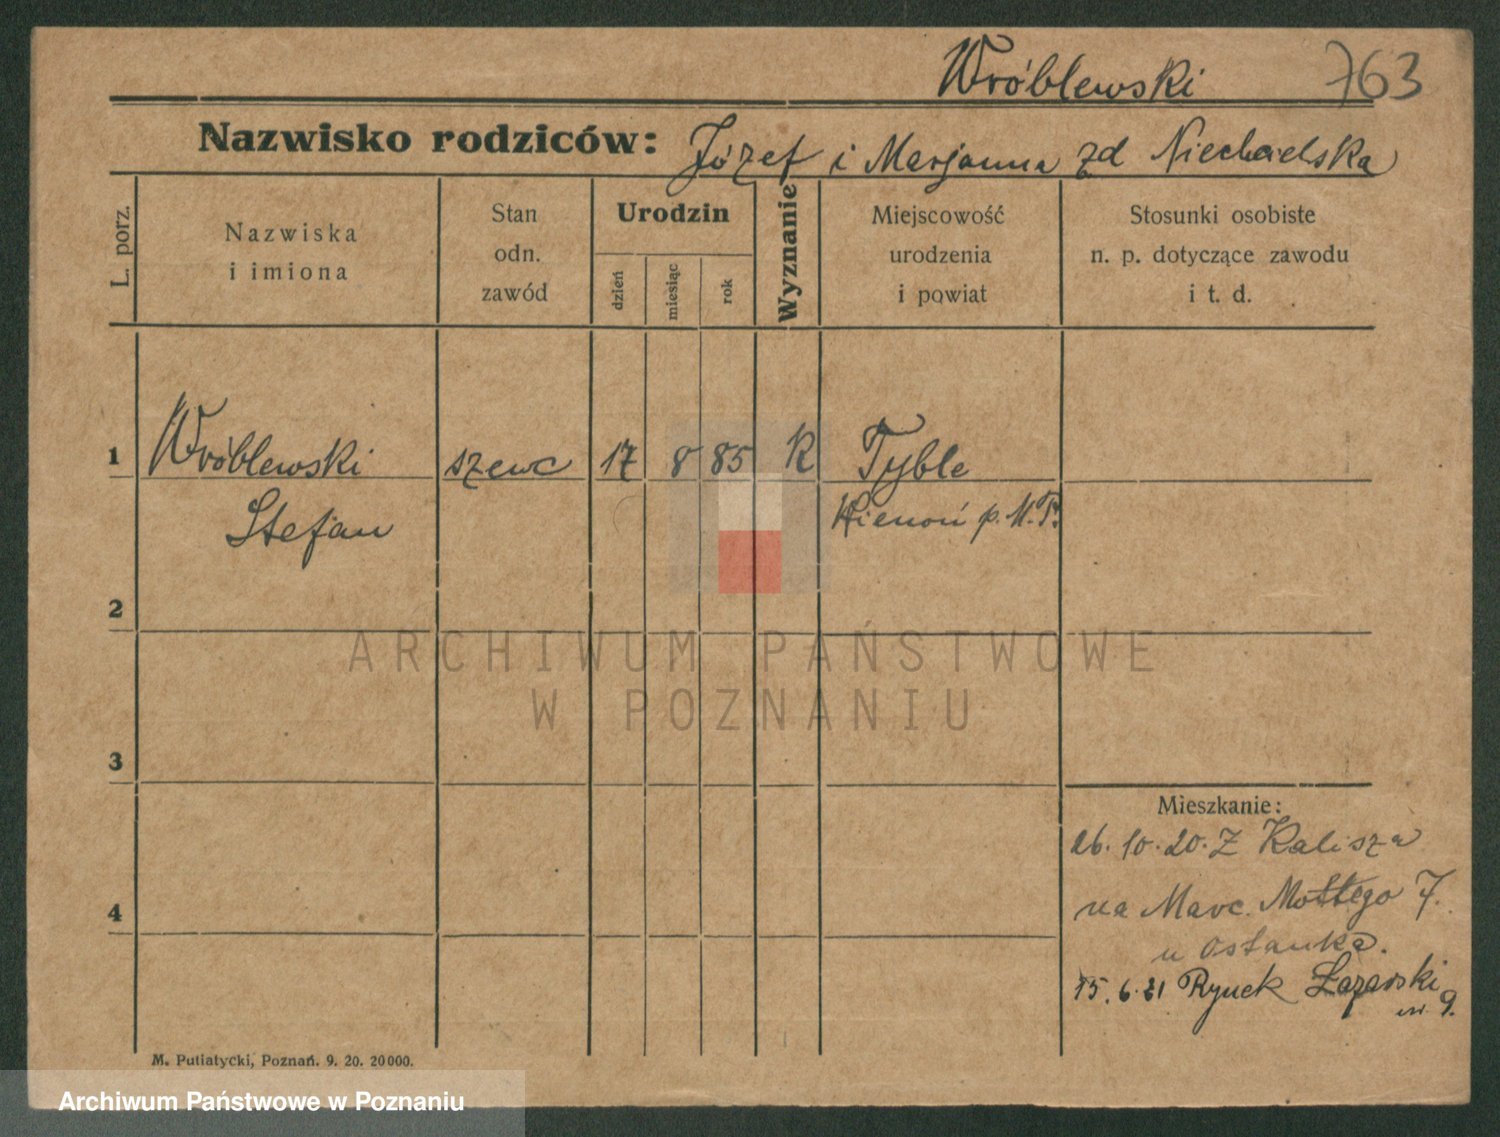 Wróblewski 763
Nazwisko rodziców: Józef i Marjanna zd
L. porz.
Nazwiska
i imiona
Stan
odn.
zawód
Urodzin
dzień
miesiąc
rok
Wyznanie
Miejscowość
urodzenia
i powiat
Stosunki osobiste
n. p. dotyczące zawodu
i t. d.
1 Wróblewski szewc 17 8 85 R Tyble
Stefan p. M. P.
2
ARCHIWUM PAŃSTWOWE
W POZNANIU
3
Mieszkanie:
26. 10. 20. Z Kalisza
na Marc. Mottego 7.
u Ostanka.
15. 6. 21 Rynek Łazarski
9.
4
M. Putiatycki, Poznań. 9. 20. 20000.
Archiwum Państwowe w Poznaniu